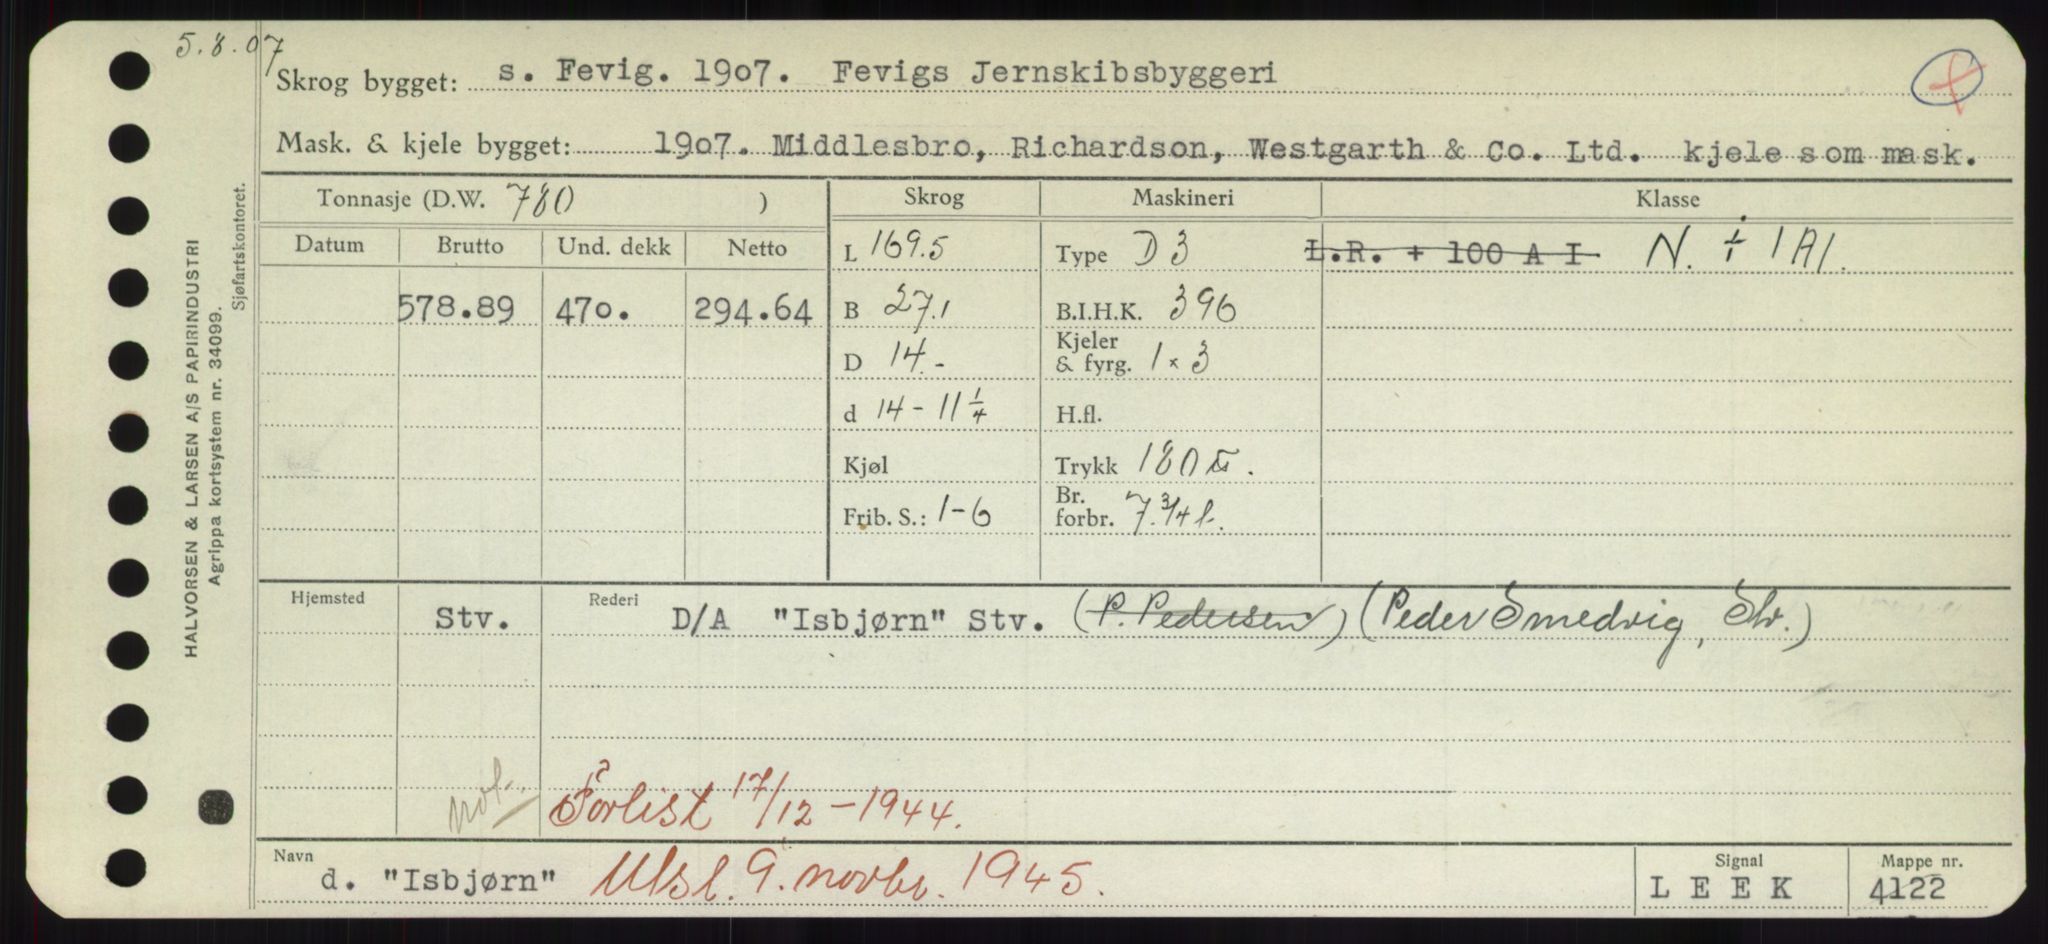 5.8.07
Skrog bygget: s. Fevig. 1907. Fevigs Jernskibsbyggeri
Mask. & kjele bygget: 1907. Middlesbro, Richardson, Westgarth & Co. Ltd. kjele som mask.
Tonnasje (D.W. 780 ) Skrog Maskineri Klasse
Datum Brutto Und. dekk Netto L 169.5 Type D3 L.R. + 100 A I N. + 1A1.
578.89 470. 294.64 B 27.1 B.I.H.K. 396
D 14.- Kjeler & fyrg. 1 x 3
d 14 - 11 1/4 H.fl.
Kjøl Trykk 180
Frib. S.: 1-6 Br. forbr. 7.3/4 t.
Hjemsted Stv. Rederi D/A "Isbjørn" Stv. (P. Pedersen) (Peder Smedvig, Stv.)
not.
Forlist 17/12 - 1944.
Navn d. "Isbjørn" Utsl. 9. novbr. 1945. Signal L E E K Mappe nr. 4122
HALVORSEN & LARSEN A/S PAPIRINDUSTRI
Agrippa kortsystem nr. 34099.
Sjøfartskontoret.